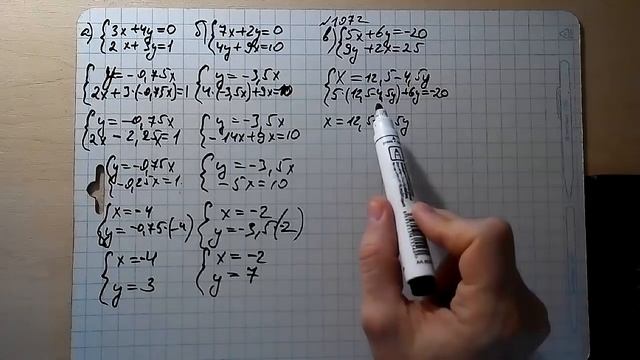 №1072
а) {3x+4y=0
{2x+3y=1
{y=-0,75x
{2x+3·(-0,75x)=1
{y=-0,75x
{2x-2,25x=1
{y=-0,75x
{-0,25x=1
{x=-4
{y=-0,75·(-4)
{x=-4
{y=3
б) {7x+2y=0
{4y+9x=10
{y=-3,5x
{4·(-3,5x)+9x=10
{y=-3,5x
{-14x+9x=10
{y=-3,5x
{-5x=10
{x=-2
{y=-3,5·(-2)
{x=-2
{y=7
в) {5x+6y=-20
{9y+2x=25
{x=12,5-4,5y
{5·(12,5-4,5y)+6y=-20
x=12,5 5y